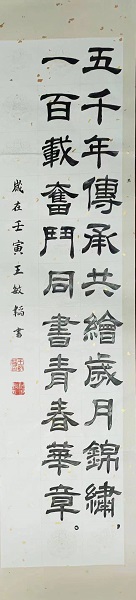 五千年傳承共繪歲月錦繡，
一百載奮鬥同書青春華章。
歲在壬寅王敏韜書